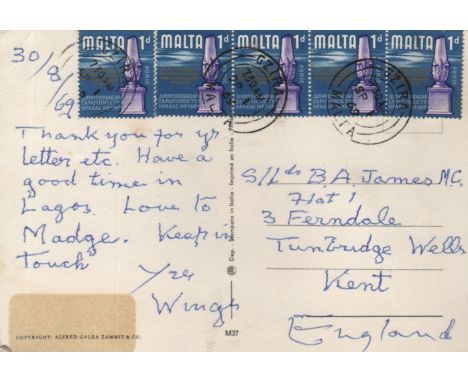 MALTA 1d MALTA 1d MALTA 1d MALTA 1d MALTA 1d
30/8/69
Thank you for yr
letter etc. Have a
good time in
Lagos. Love to
Madge. Keep in
Touch
Wings
S/Ldr B.A. James M.C.
Flat 1
3 Ferndale
Tunbridge Wells
Kent
England
COPYRIGHT: ALFRED GALEA ZAMMIT & CO.
M37